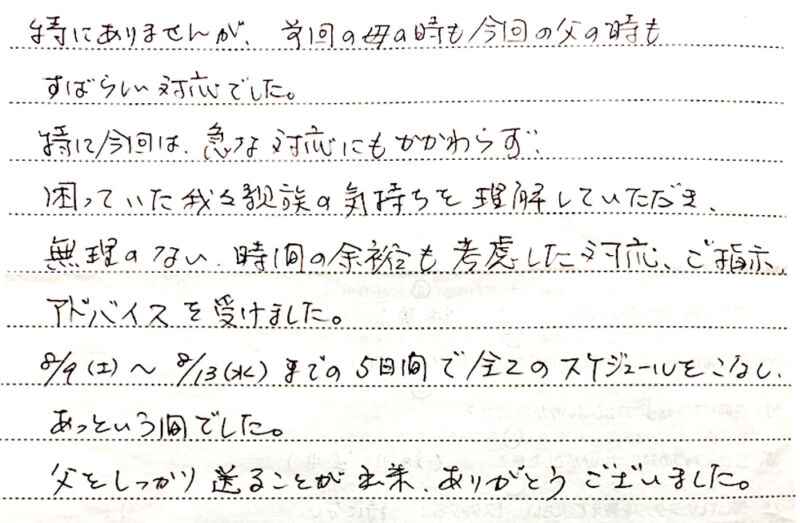 特にありませんが、前回の母の時も今回の父の時も
すばらしい対応でした。
特に今回は、急な対応にもかかわらず、
困っていた我々親族の気持ちを理解していただき、
無理のない、時間の余裕も考慮した対応、ご指示、
アドバイスを受けました。
8/9(土)～8/13(水)までの5日間で全てのスケジュールをこなし、
あっという間でした。
父をしっかり送ることが出来、ありがとうございました。